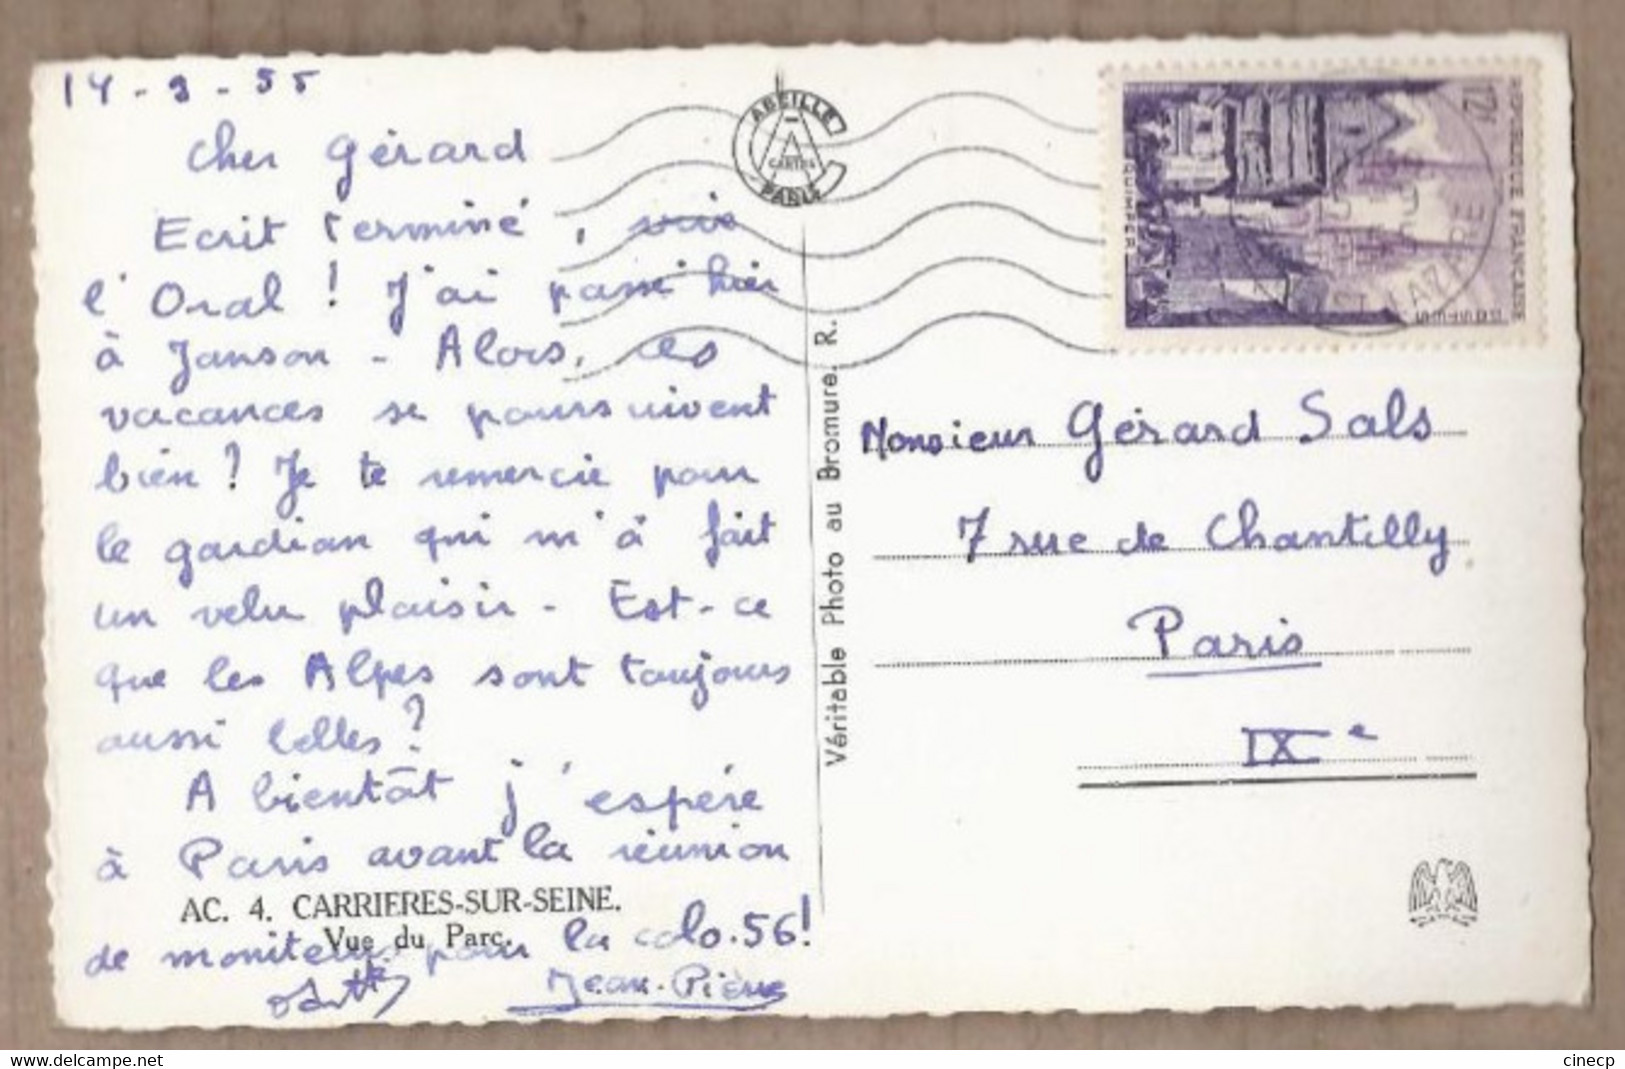 14-9-55
Cher Gérard
Ecrit terminé, vive
l'Oral ! J'ai passé hier
à Janson - Alors, ces
vacances se poursuivent
bien ? Je te remercie pour
le gardian qui m'a fait
un velu plaisir - Est-ce
que les Alpes sont toujours
aussi belles ?
A bientôt j'espère
à Paris avant la réunion
de moniteurs pour la colo.56!
Jean-Pierre
AC. 4. CARRIERES-SUR-SEINE.
Vue du Parc.
ABEILLE
CARTES
PARIS
Véritable Photo au Bromure. R.
12f
REPUBLIQUE FRANÇAISE
QUIMPER
ST LAZARE
Monsieur Gérard Sals
7 rue de Chantilly
Paris
IXe
https://www.delcampe.net
cinecp